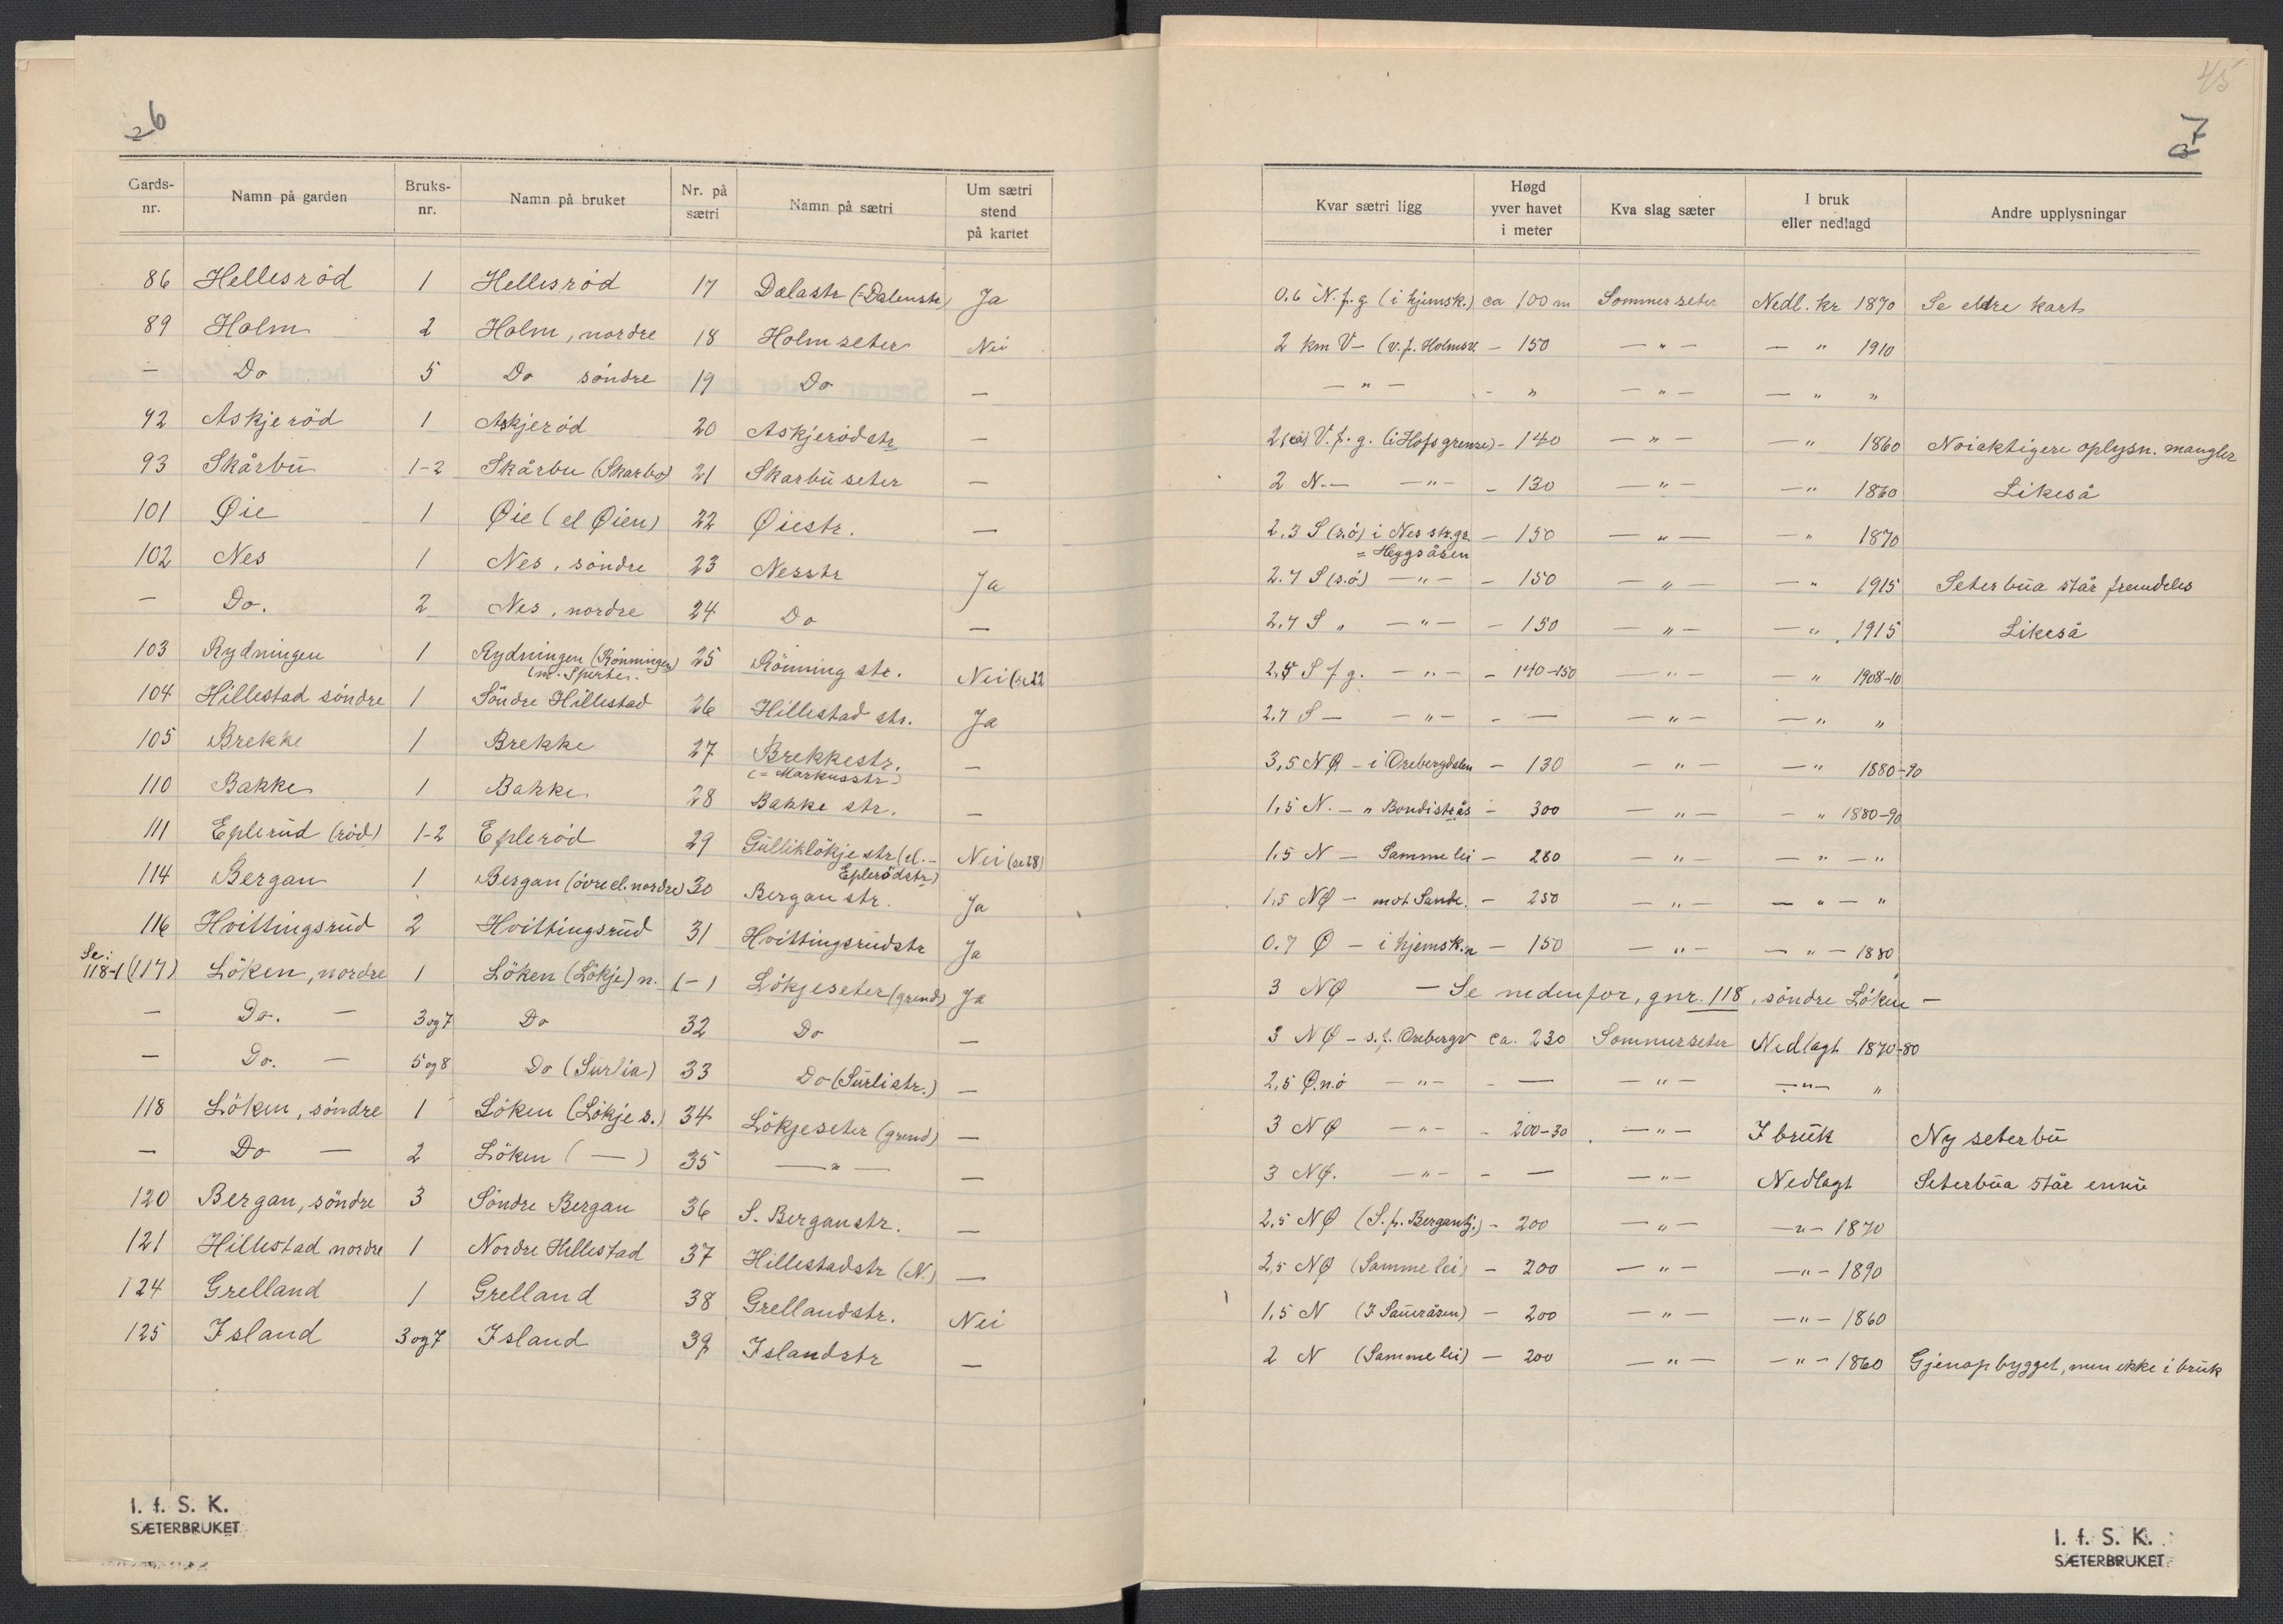 26
Gards-nr. Namn på garden Bruks-nr. Namn på bruket Nr. på sætri Namn på sætri Um sætri stend på kartet
86 Hellesröd 1 Hellesröd 17 Dalastr (=Dalenstr) Ja
89 Holm 2 Holm, nordre 18 Holmseter Nei
— Do 5 Do söndre 19 Do —
92 Askjeröd 1 Askjeröd 20 Askjerödstr —
93 Skårbu 1-2 Skårbu (Skarbo) 21 Skarbu seter —
101 Øie 1 Øie (el Øien) 22 Øiestr. —
102 Nes 1 Nes, söndre 23 Nesstr Ja
— Do. 2 Nes, nordre 24 Do —
103 Rydningen 1 Rydningen (Rönningen) 25 Rönning str. Nei (se 22
104 Hillestad söndre 1 Söndre Hillestad 26 Hillestad str. Ja
105 Brekke 1 Brekke 27 Brekkestr. —
(= Markusstr)
110 Bakke 1 Bakke 28 Bakke str. —
111 Eplerud (röd) 1-2 Epleröd 29 Gulliklökje str (el. - Nei (se 28)
Eplerödstr)
114 Bergan 1 Bergan (övre el. nordre) 30 Bergan str. Ja
116 Hvittingsrud 2 Hvittingsrud 31 Hvittingsrudstr Ja
Se:
118-1 (117) Löken, nordre 1 Löken (Lökje) n. (-) Lökjeseter (grend) Ja
— Do. — 3 og 7 Do 32 Do —
— Do. — 5 og 8 Do (Surlia) 33 Do (Surlistr.) —
118 Löken, söndre 1 Löken (Lökje s.) 34 Lökjeseter (grend) —
— Do — 2 Löken ( — ) 35 — " — —
120 Bergan, söndre 3 Söndre Bergan 36 S. Berganstr. —
121 Hillestad nordre 1 Nordre Hillestad 37 Hillestadstr (N.) —
124 Grelland 1 Grelland 38 Grellandstr. Nei
125 Island 3 og 7 Island 39 Islandstr —
I. f. S. K.
SÆTERBRUKET
45
7
3
Kvar sætri ligg Høgd yver havet i meter Kva slag sæter I bruk eller nedlagd Andre upplysningar
0.6 N. f. g (i hjemsk.) ca 100 m Sommerseter Nedl. kr 1870 Se eldre kart
2 km V — (v. f. Holmsv. — 150 — " — — " 1910
— " — - " — " — — " "
2 (ca) V. f. g. (i Hofs grense) - 140 — " — — " 1860 Nöiaktigere oplysn. mangler
2 N. — — " — - 130 — " — — " 1860 Likeså
2.3 S (s.ö) i Nes str.gr. — 150 — " — — " 1870
= Heggsåsen
2.7 S (s.ö) — " — — 150 — " — — " 1915 Seterbua står fremdeles
2.7 S " — " — — 150 — " — — " 1915 Likeså
2,5 S f g. — " — - 140-150 — " — — " 1908-10
2.7 S — — " — - — — " — — " "
3,5 NØ - i Orebergdalen — 130 — " — — " 1880-90
1,5 N. — " Bondistrås — 300 — " — — " 1880-90
1.5 N — Samme lei — 280 — " — — " — "
1.5 NØ — mot Sande. — 250 — " — — " — "
0.7 Ø — i hjemsk.n — 150 — " — — " — 1880
3 NØ — Se nedenfor, gnr. 118, söndre Löken —
3 NØ - s. f. Orebergv ca. 230 Sommerseter Nedlagt 1870-80
2,5 Ø.n.ö — " — - — — " — — " — "
3 NØ — " — - 200-30 — " — I bruk Ny seterbu
3 NØ. — " — - — — " — Nedlagt Seterbua står ennu
2,5 NØ (S. f. Bergantj.) - 200 — " — — " — 1870
2,5 NØ (Samme lei) — 200 — " — — " — 1890
1,5 N (I Saueråsen) — 200 — " — " — 1860
2 N (Samme lei) — 200 — " — — " — 1860 Gjenopbygget, men ikke i bruk
I. f. S. K.
SÆTERBRUKET